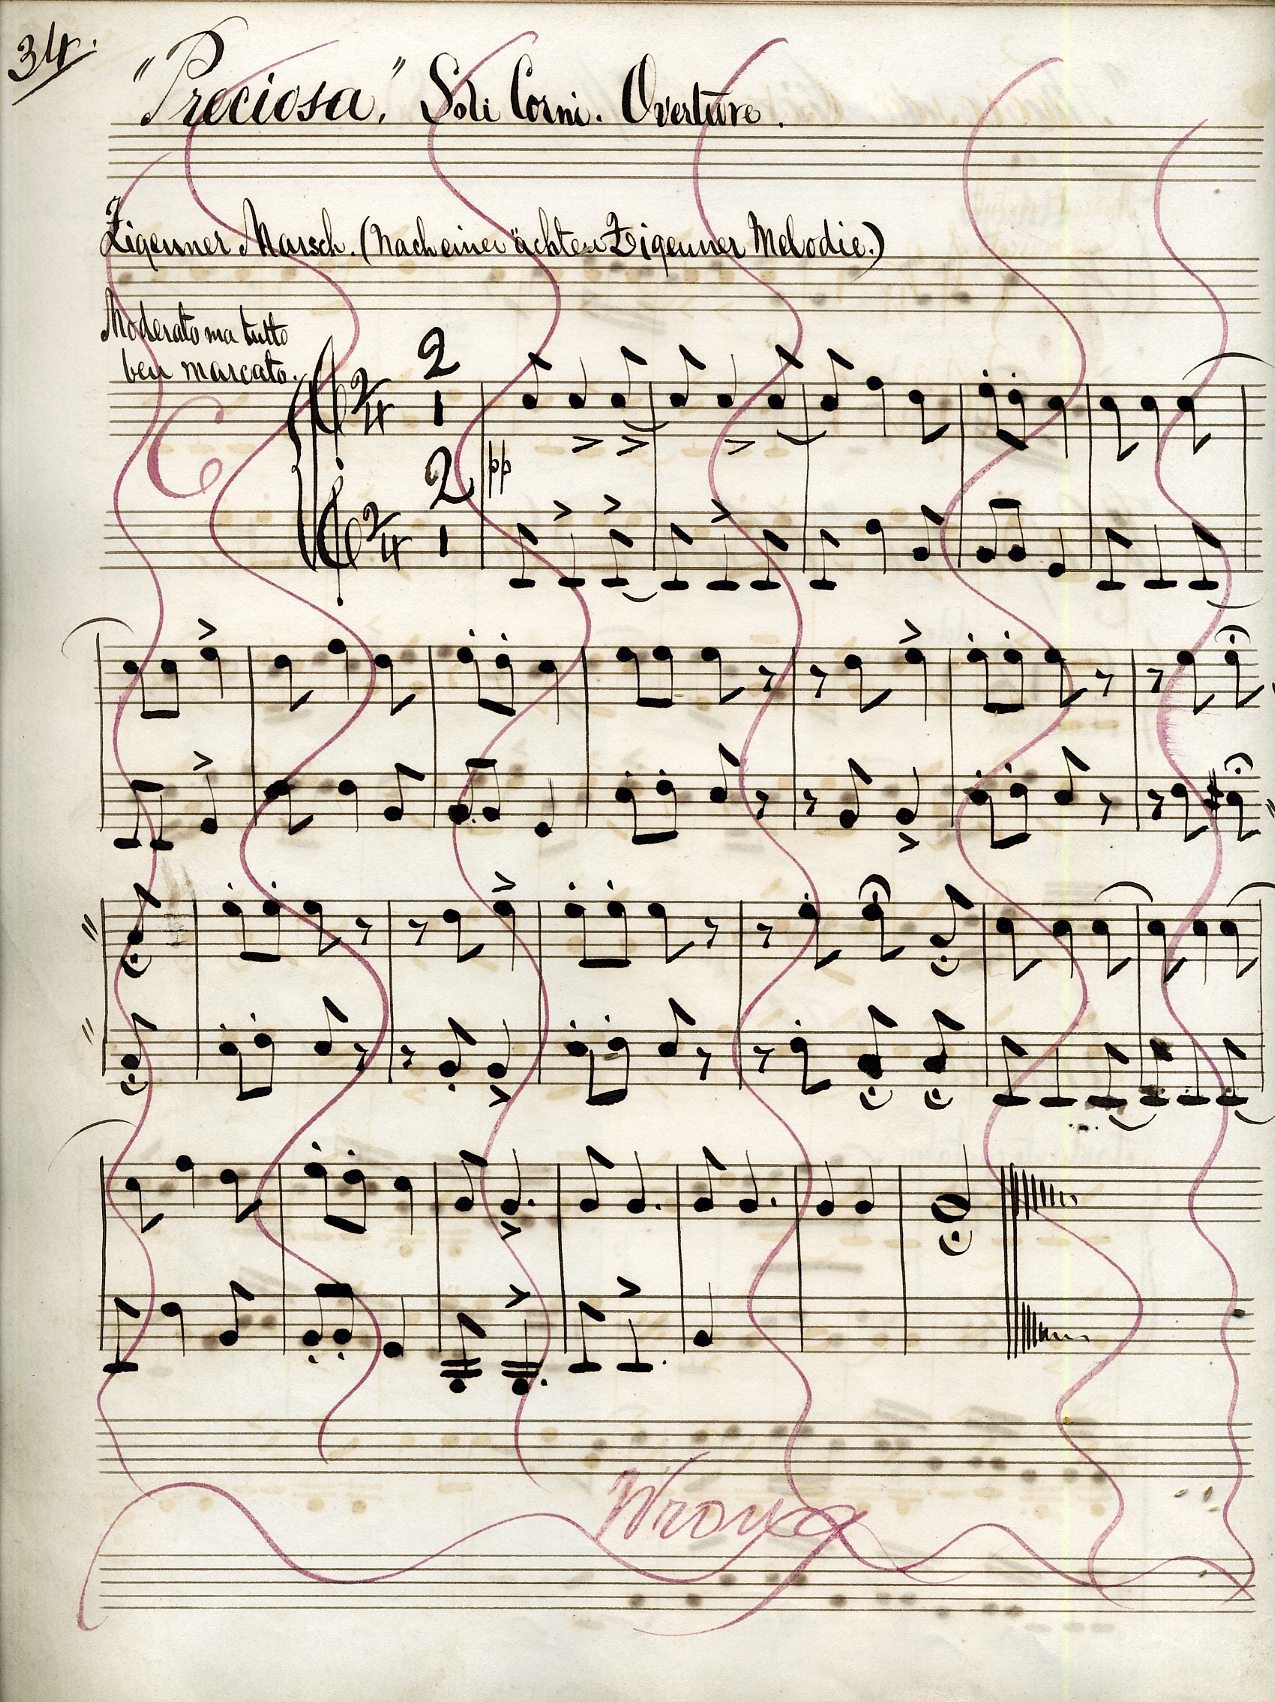 34.
"Preciosa." Soli Corni. Overture.
Zigeuner Marsch. (Nach einer ächten Zigeuner Melodie.)
Moderato ma tutto
ben marcato.
C
2
4
2
1
pp
2
4
2
1
Wrong